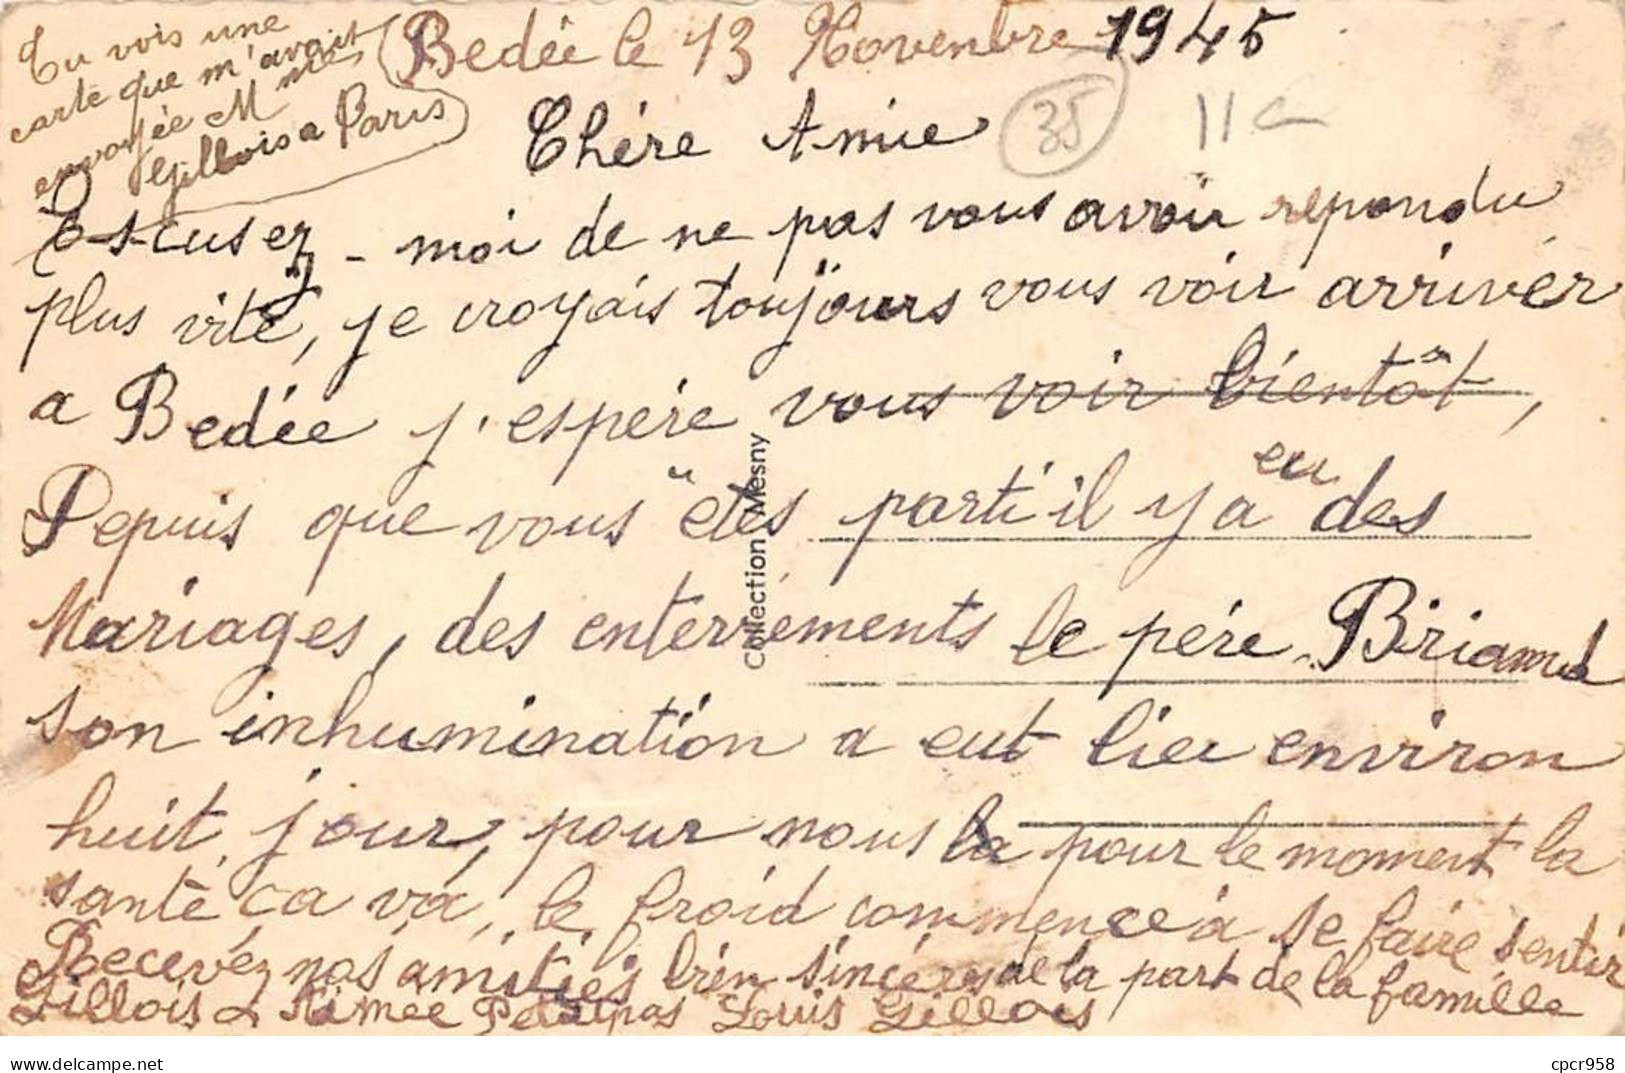 Tu vois une
carte que m'avait
envoyée M mes
Gillois a Paris
Bedée le 13 Novenbre 1945
Chére Amie
35
Escusez-moi de ne pas vous avoir repondu
plus vite, je croyais toujours vous voir arriver
a Bedée j'espére vous voir bientôt,
Depuis que vous etes parti il y a eu des
Mariages, des enterrements le pére Briand
son inhumination a eut lieu environ
huit jour, pour nous la pour le moment la
santé ça va, le froid commence à se faire sentir
Recevez nos amitiés bien sincéres de la part de la famille
Gillois & Aimée Petitpas Louis Gillois
Collection Mesny
cpcr958